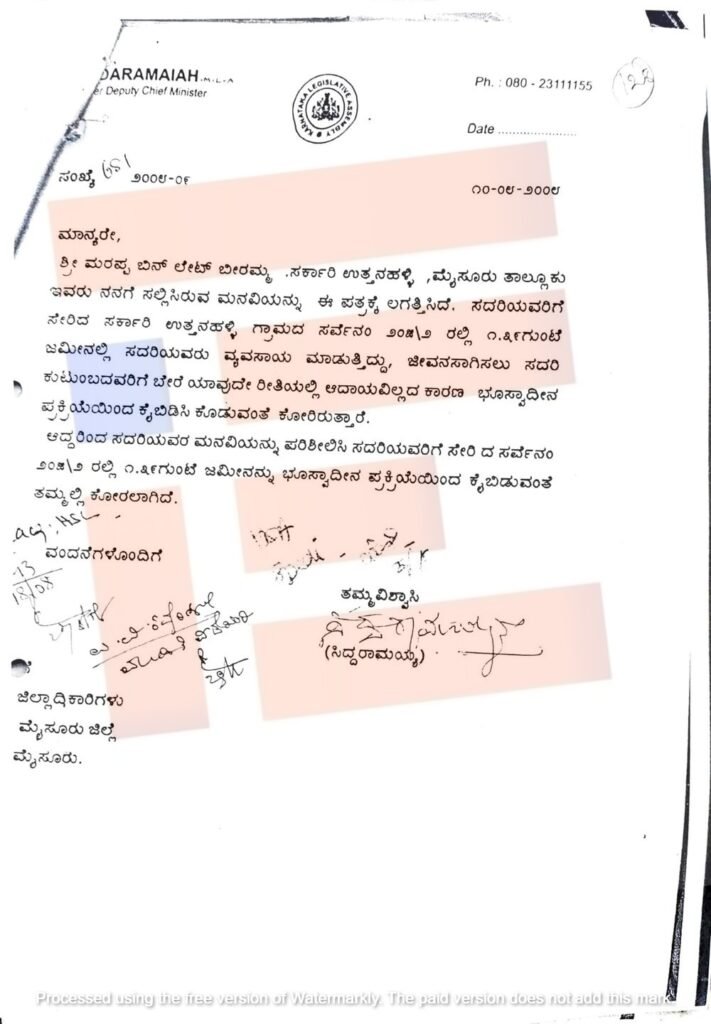 DARAMAIAH M.L.A
er Deputy Chief Minister
KARNATAKA LEGISLATIVE ASSEMBLY
Ph. : 080 - 23111155
Date ....................
ಸಂಖ್ಯೆ ೨೦೦೮-೦೯
೧೦-೦೮-೨೦೦೮
ಮಾನ್ಯರೇ,
ಶ್ರೀ ಮರಪ್ಪ ಬಿನ್ ಲೇಟ್ ಬೀರಮ್ಮ .ಸರ್ಕಾರಿ ಉತ್ತನಹಳ್ಳಿ ,ಮೈಸೂರು ತಾಲ್ಲೂಕು
ಇವರು ನನಗೆ ಸಲ್ಲಿಸಿರುವ ಮನವಿಯನ್ನು ಈ ಪತ್ರಕ್ಕೆ ಲಗತ್ತಿಸಿದೆ. ಸದರಿಯವರಿಗೆ
ಸೇರಿದ ಸರ್ಕಾರಿ ಉತ್ತನಹಳ್ಳಿ ಗ್ರಾಮದ ಸರ್ವೆನಂ ೨೦೫\೨ ರಲ್ಲಿ ೧.೩೯ಗುಂಟೆ
ಜಮೀನಲ್ಲಿ ಸದರಿಯವರು ವ್ಯವಸಾಯ ಮಾಡುತ್ತಿದ್ದು, ಜೀವನಸಾಗಿಸಲು ಸದರಿ
ಕುಟುಂಬದವರಿಗೆ ಬೇರೆ ಯಾವುದೇ ರೀತಿಯಲ್ಲಿ ಆದಾಯವಿಲ್ಲದ ಕಾರಣ ಭೂಸ್ವಾದೀನ
ಪ್ರಕ್ರಿಯೆಯಿಂದ ಕೈಬಿಡಿಸಿ ಕೊಡುವಂತೆ ಕೋರಿರುತ್ತಾರೆ.
ಆದ್ದರಿಂದ ಸದರಿಯವರ ಮನವಿಯನ್ನು ಪರಿಶೀಲಿಸಿ ಸದರಿಯವರಿಗೆ ಸೇರಿ ದ ಸರ್ವೆನಂ
೨೦೫\೨ ರಲ್ಲಿ ೧.೩೯ಗುಂಟೆ ಜಮೀನನ್ನು ಭೂಸ್ವಾದೀನ ಪ್ರಕ್ರಿಯೆಯಿಂದ ಕೈಬಿಡುವಂತೆ
ತಮ್ಮಲ್ಲಿ ಕೋರಲಾಗಿದೆ.
ವಂದನೆಗಳೊಂದಿಗೆ
ತಮ್ಮವಿಶ್ವಾಸಿ
(ಸಿದ್ದರಾಮಯ್ಯ)
ಜಿಲ್ಲಾಧಿಕಾರಿಗಳು
ಮೈಸೂರು ಜಿಲ್ಲೆ
ಮೈಸೂರು.
Processed using the free version of Watermarkly. The paid version does not add this mark.